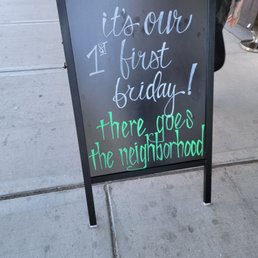 it's our
1st first
friday!
there goes
the neighborhood